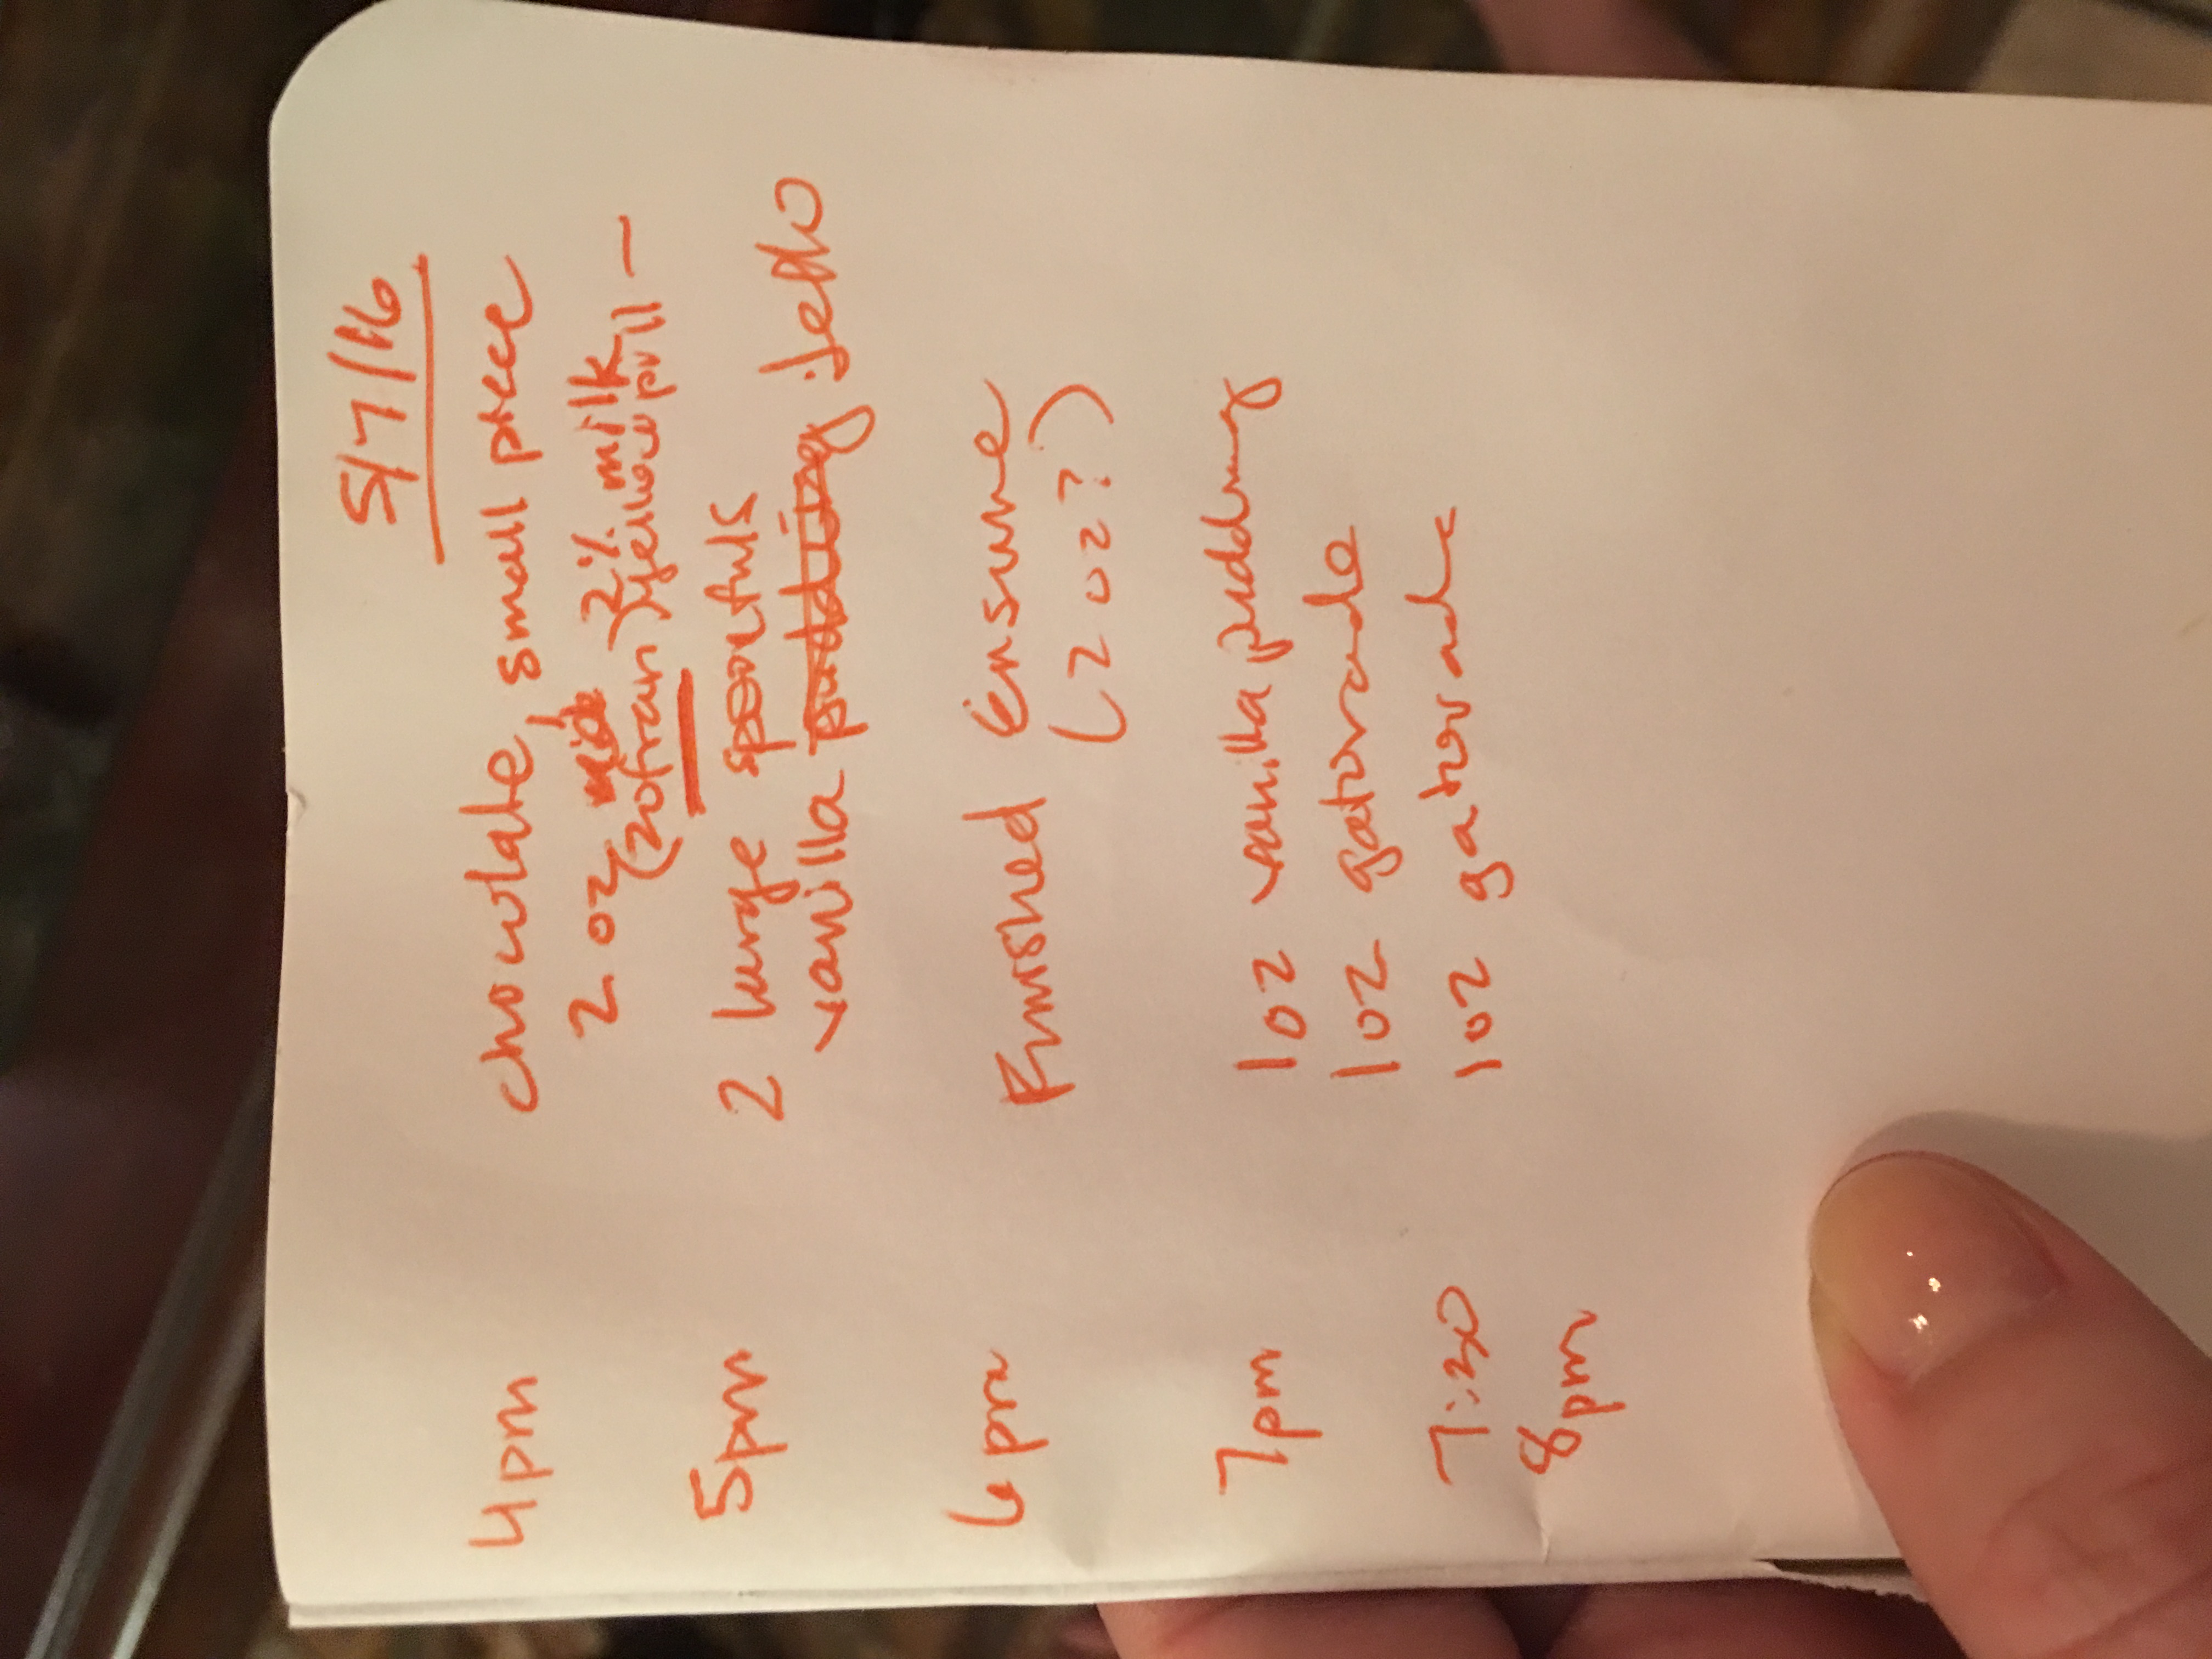 5/7/16
4pm chocolate, small piece
2 oz 2% milk
(zofran) yellow pill —
5pm 2 large spoonfuls
vanilla pudding Jello
6pm Finished Ensure
(2 oz?)
7pm 1 oz vanilla pudding
1 oz gatorade
7:30 1 oz gatorade
8pm